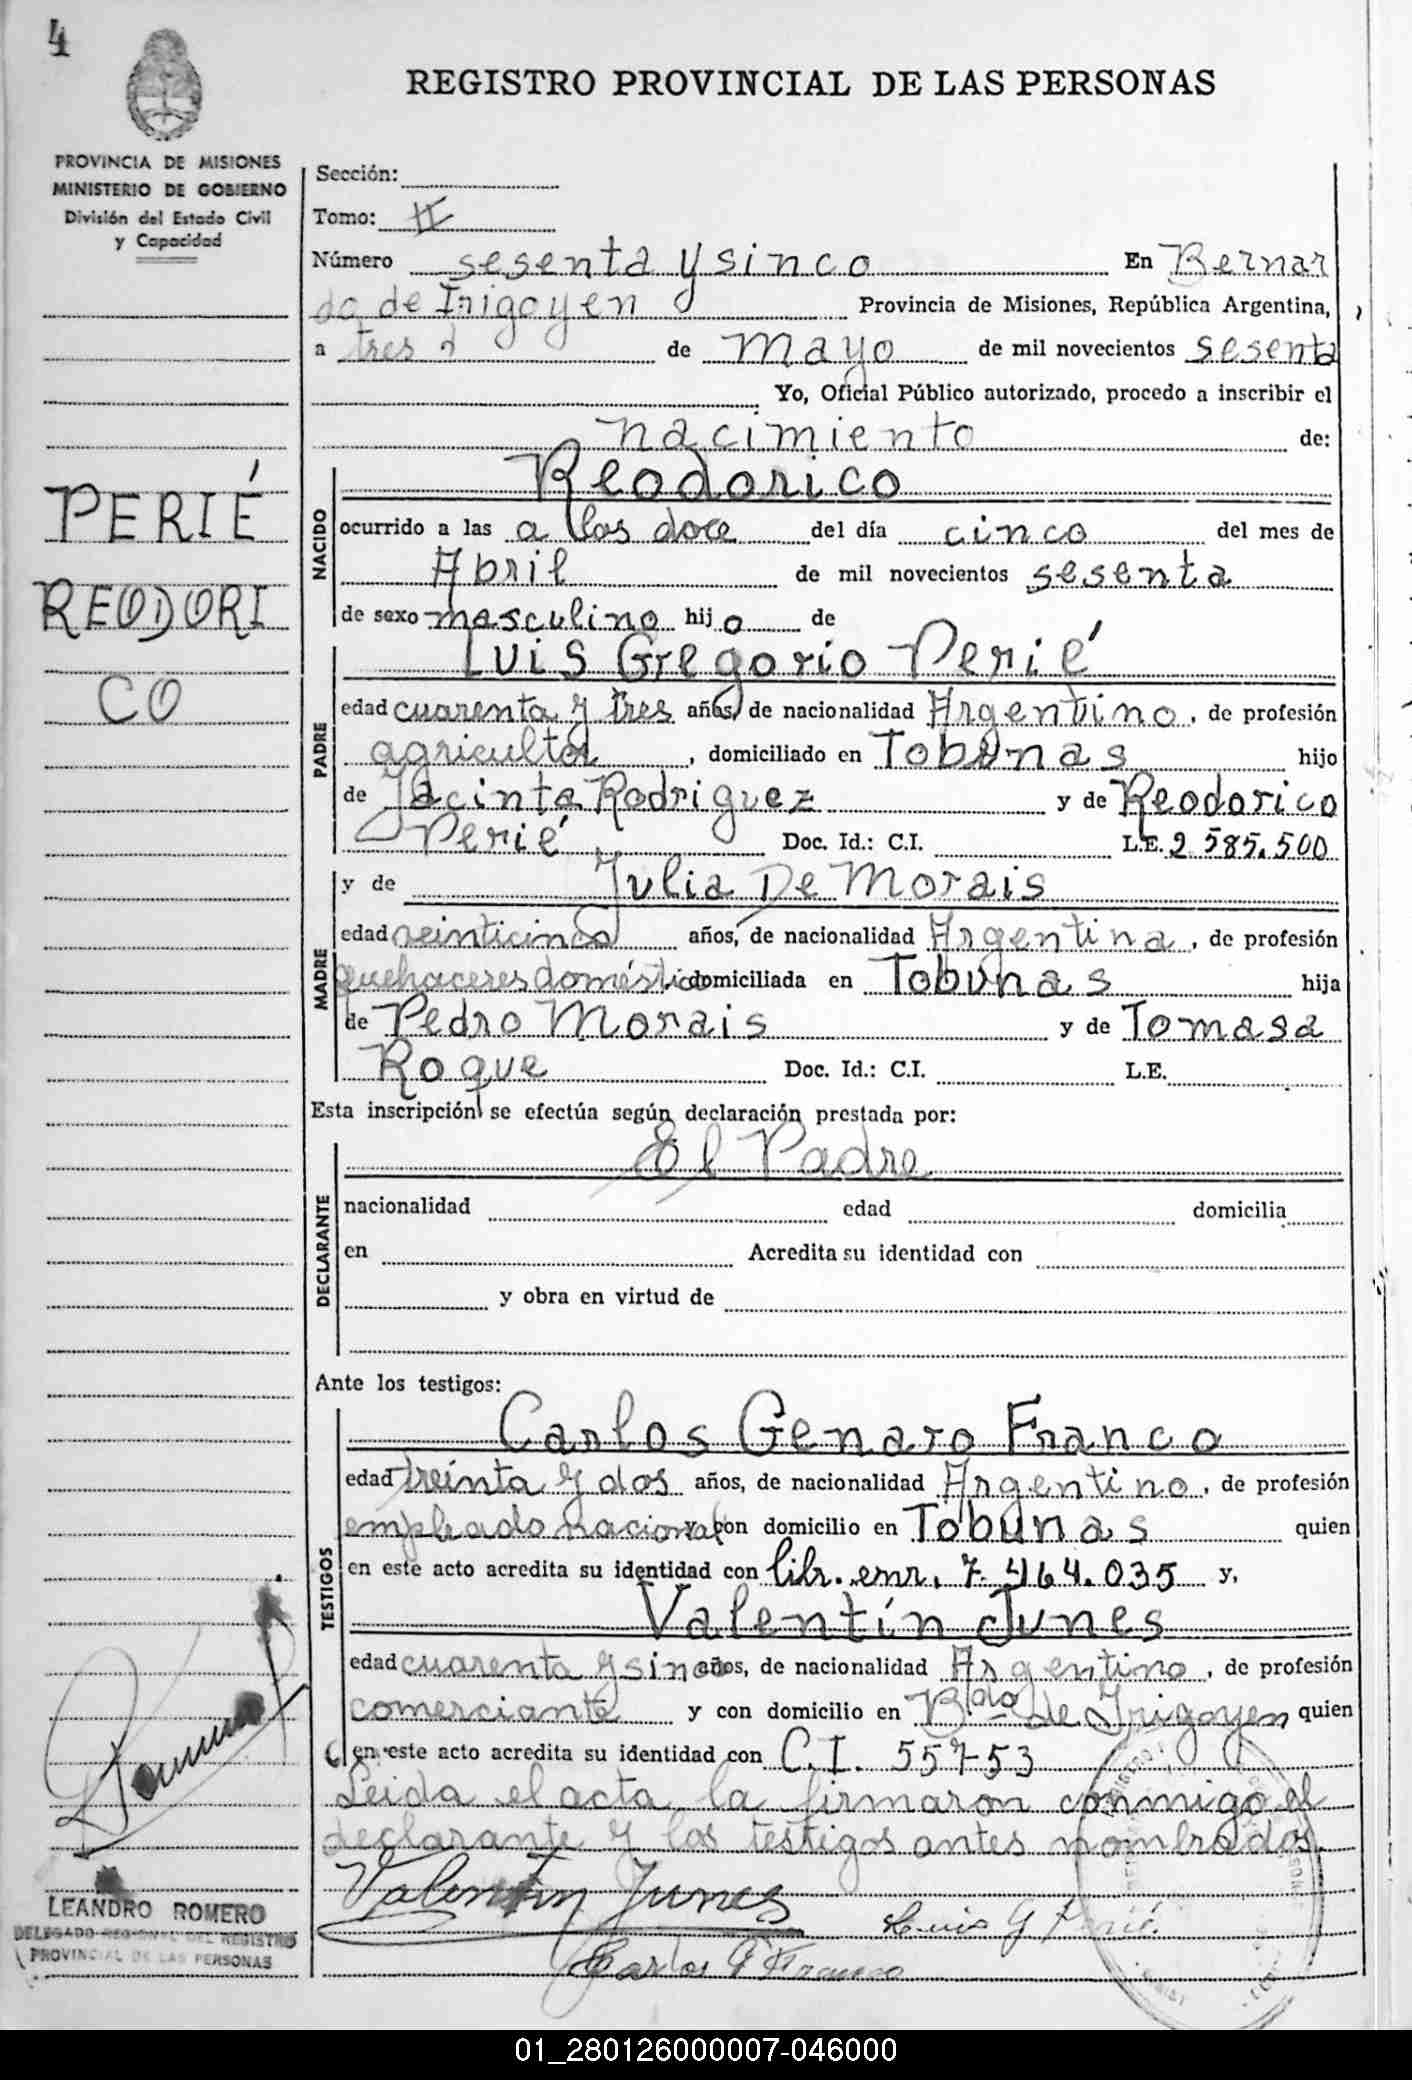 4
REGISTRO PROVINCIAL DE LAS PERSONAS
PROVINCIA DE MISIONES
MINISTERIO DE GOBIERNO
División del Estado Civil
y Capacidad
PERIÉ
REODORI
CO
Sección:
Tomo: II
Número sesenta y sinco En Bernar
do de Irigoyen Provincia de Misiones, República Argentina,
a tres de mayo de mil novecientos sesenta
Yo, Oficial Público autorizado, procedo a inscribir el
nacimiento de:
NACIDO
Reodorico
ocurrido a las a las doce del día cinco del mes de
Abril de mil novecientos sesenta
de sexo masculino hijo de
PADRE
Luis Gregorio Perié
edad cuarenta y tres años, de nacionalidad Argentino, de profesión
agricultor, domiciliado en Tobunas hijo
de Jacinta Rodriguez y de Reodorico
Perié Doc. Id.: C.I. L.E. 2.585.500
MADRE
y de Julia De Morais
edad veinticinco años, de nacionalidad Argentina, de profesión
quehaceres domésticos domiciliada en Tobunas hija
de Pedro Morais y de Tomasa
Roque Doc. Id.: C.I. L.E.
Esta inscripción se efectúa según declaración prestada por:
DECLARANTE
El Padre
nacionalidad edad domicilia
en Acredita su identidad con
y obra en virtud de
Ante los testigos:
TESTIGOS
Carlos Genaro Franco
edad treinta y dos años, de nacionalidad Argentino, de profesión
empleado nacional y con domicilio en Tobunas quien
en este acto acredita su identidad con libr. enr. 7.464.035 y,
Valentín Junes
edad cuarenta y sinco años, de nacionalidad Argentino, de profesión
comerciante y con domicilio en Bdo de Irigoyen quien
en este acto acredita su identidad con C.I. 55753
Leida el acta la firmaron conmigo el
declarante y los testigos antes nombrados.
Valentin Junes
Luis G Perié
Carlos G Franco
LEANDRO ROMERO
DELEGADO REGIONAL DEL REGISTRO
PROVINCIAL DE LAS PERSONAS
01_280126000007-046000